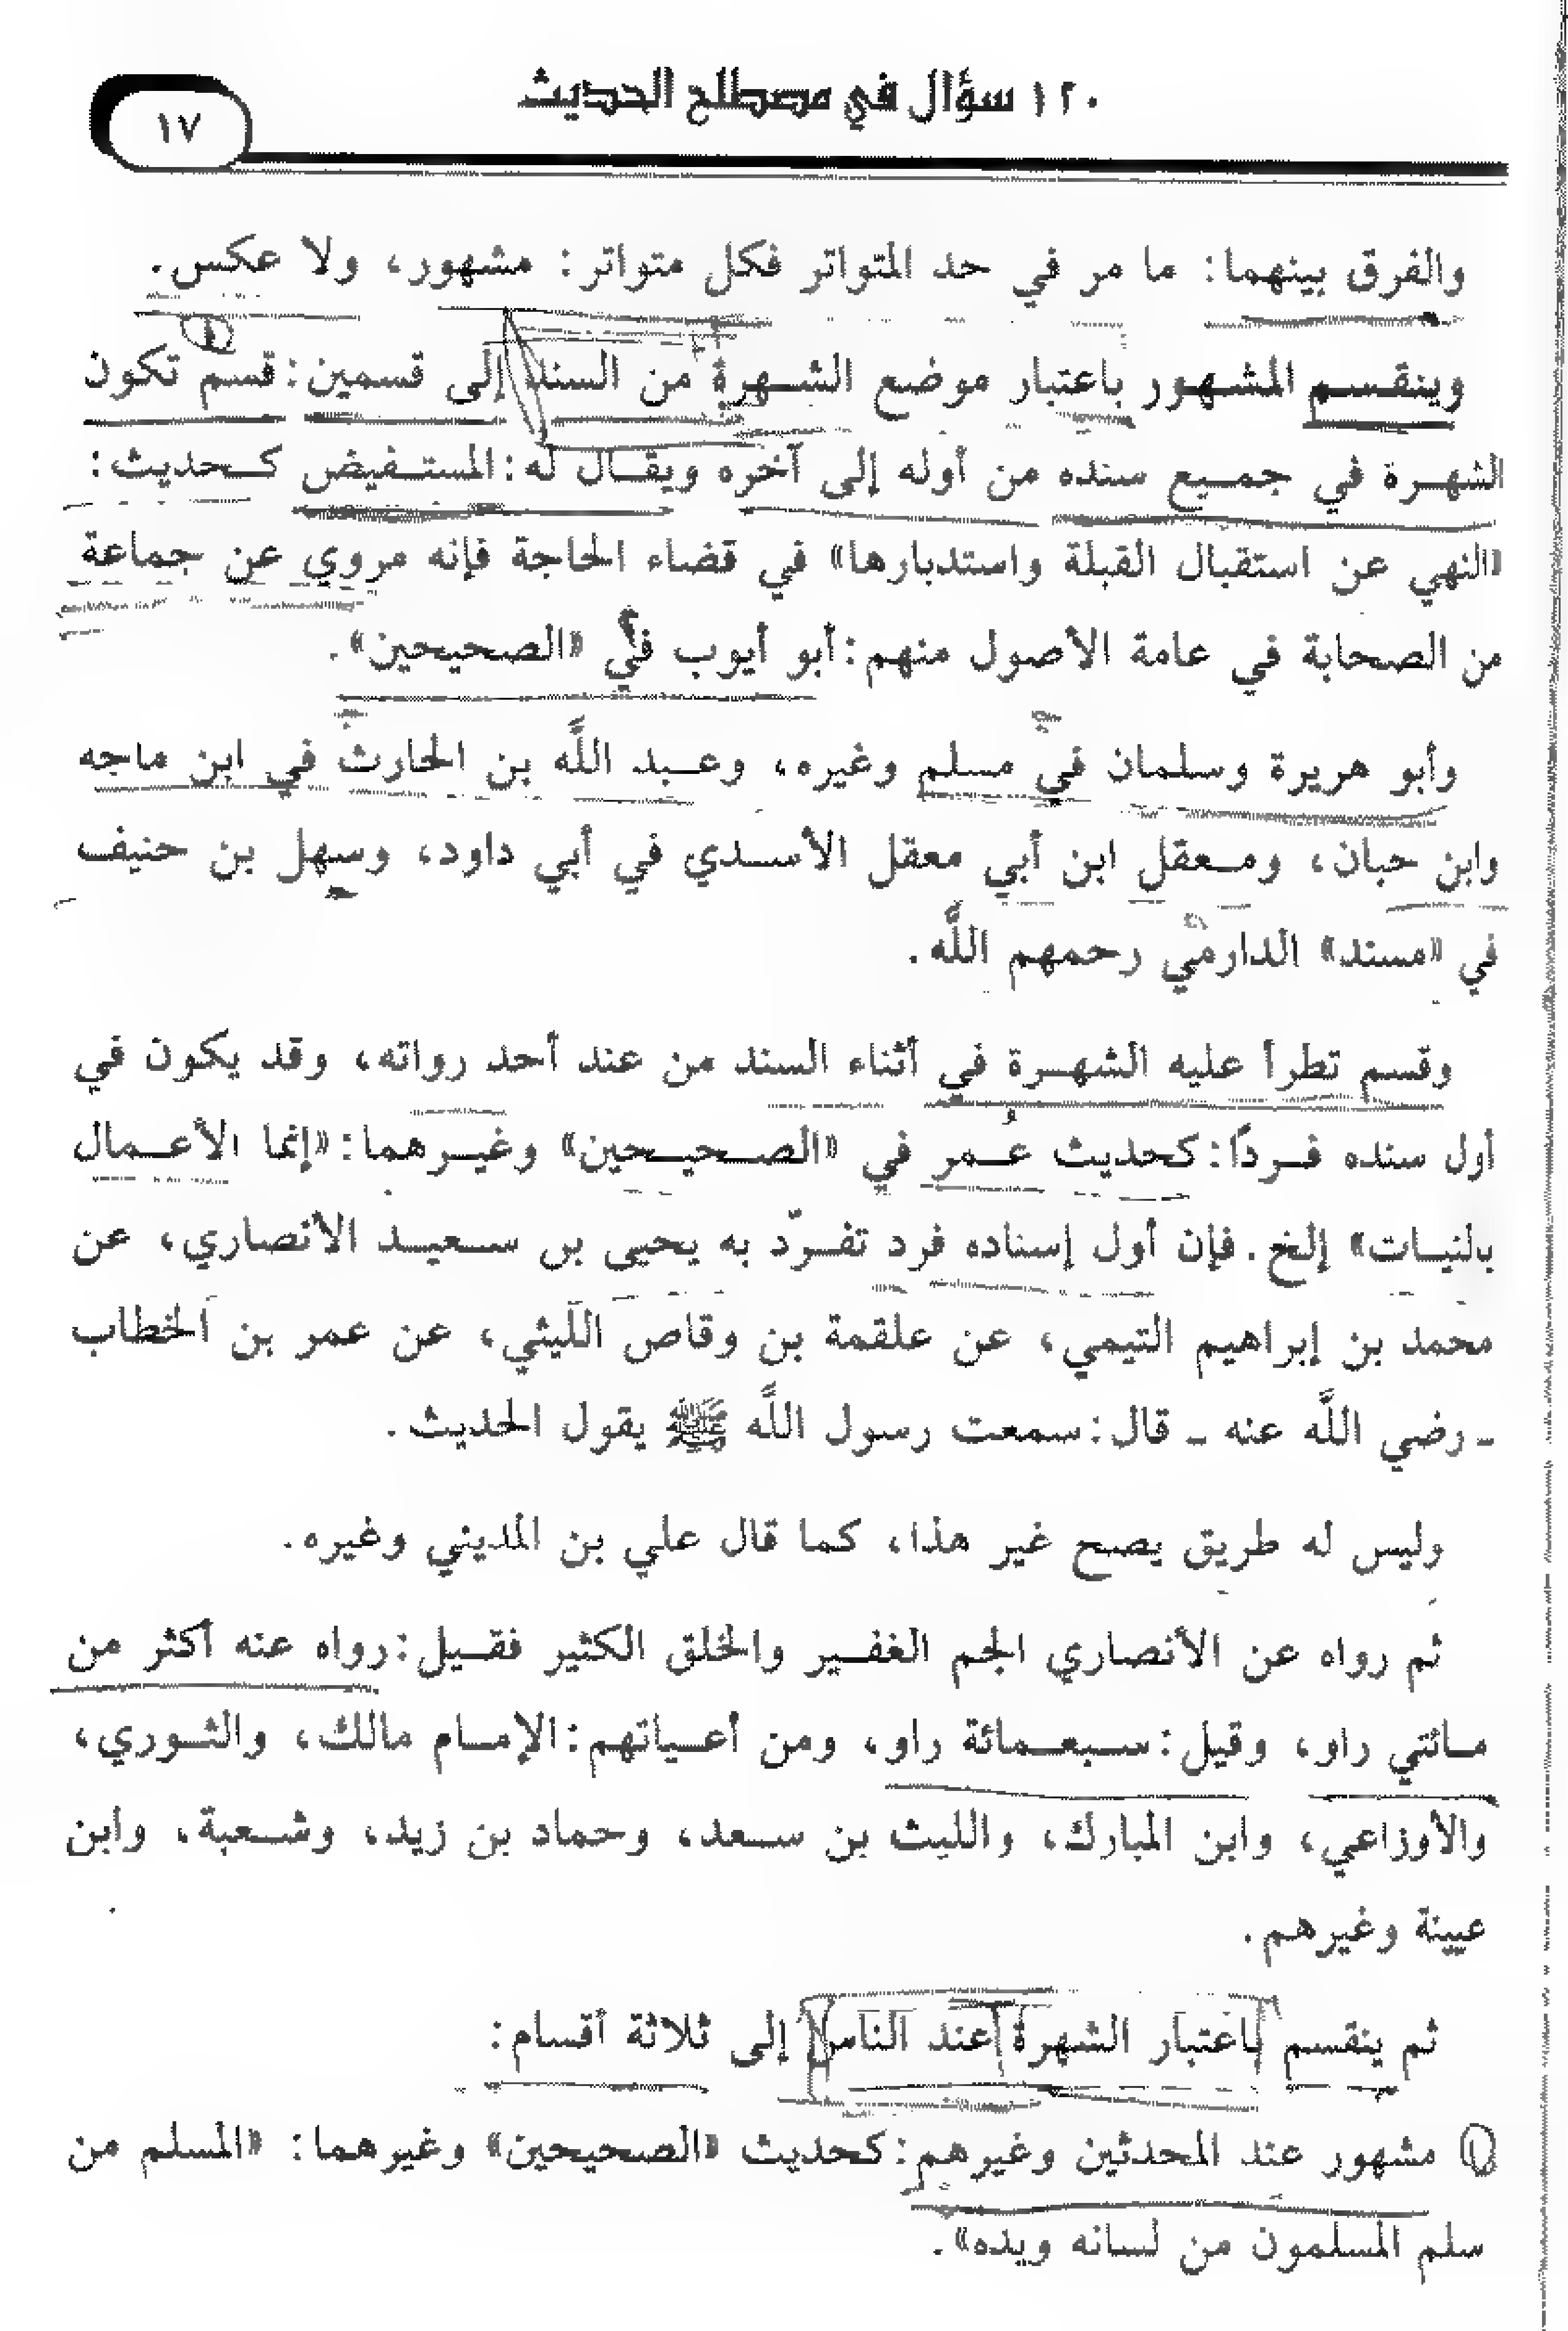 ١٢٠ سؤال في مصطلح الحديث
١٧
والفرق بينهما: ما مر في حد المتواتر فكل متواتر: مشهور، ولا عكس.
وينقسم المشهور باعتبار موضع الشهرة من السند إلى قسمين: قسم تكون
الشهرة في جميع سنده من أوله إلى آخره ويقال له: المستفيض كحديث:
«النهي عن استقبال القبلة واستدبارها» في قضاء الحاجة فإنه مروي عن جماعة
من الصحابة في عامة الأصول منهم: أبو أيوب في «الصحيحين».
وأبو هريرة وسلمان في مسلم وغيره، وعبد اللَّه بن الحارث في ابن ماجه
وابن حبان، ومعقل ابن أبي معقل الأسدي في أبي داود، وسهل بن حنيف
في «مسند» الدارمي رحمهم اللَّه.
وقسم تطرأ عليه الشهرة في أثناء السند من عند أحد رواته، وقد يكون في
أول سنده فردًا: كحديث عُمر في «الصحيحين» وغيرهما: «إنما الأعمال
بالنيات» إلخ. فإن أول إسناده فرد تفرّد به يحيى بن سعيد الانصاري، عن
محمد بن إبراهيم التيمي، عن علقمة بن وقاص الليثي، عن عمر بن الخطاب
ـ رضي اللَّه عنه ـ قال: سمعت رسول اللَّه ﷺ يقول الحديث.
وليس له طريق يصح غير هذا، كما قال علي بن المديني وغيره.
ثم رواه عن الأنصاري الجم الغفير والخلق الكثير فقيل: رواه عنه أكثر من
مائتي راو، وقيل: سبعمائة راو، ومن أعياتهم: الإمام مالك، والثوري،
والأوزاعي، وابن المبارك، والليث بن سعد، وحماد بن زيد، وشعبة، وابن
عيينة وغيرهم.
ثم ينقسم باعتبار الشهرة عند الناس إلى ثلاثة أقسام:
١ مشهور عند المحدثين وغيرهم: كحديث «الصحيحين» وغيرهما: «المسلم من
سلم المسلمون من لسانه ويده».